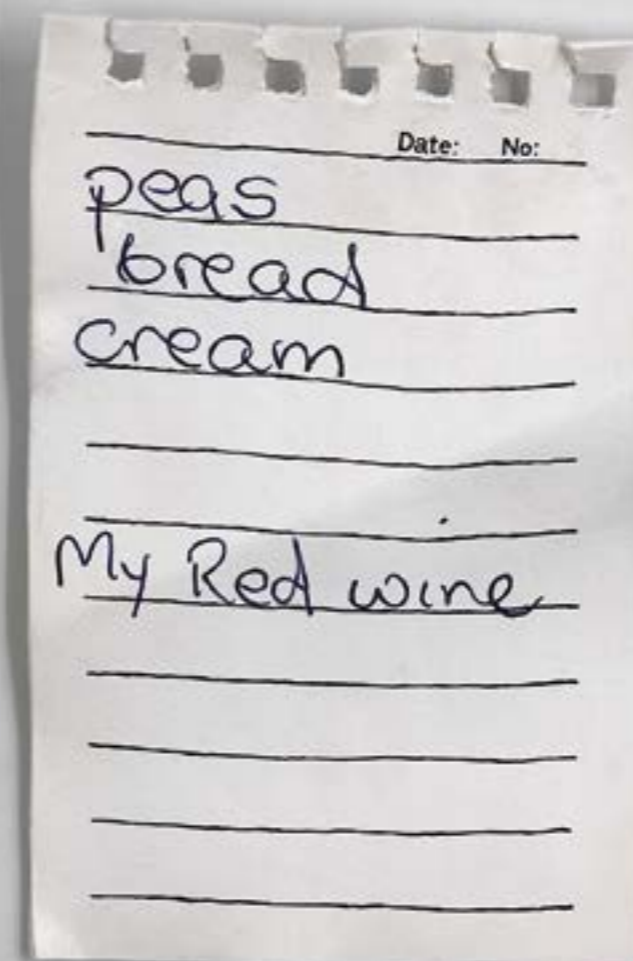 Date: No:
peas
bread
cream
My Red wine